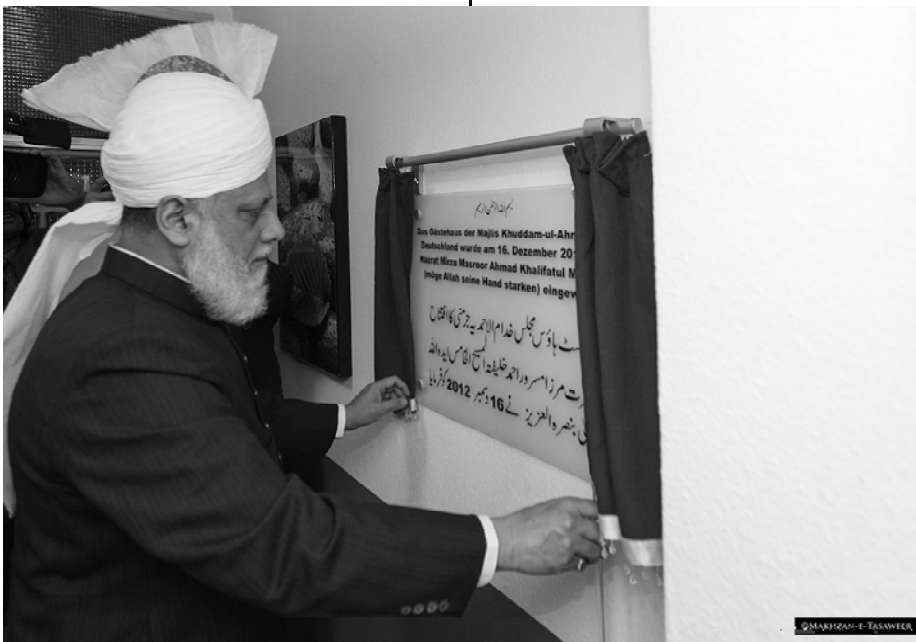 بسم اللہ الرحمن الرحیم
Das Gästehaus der Majlis Khuddam-ul-Ahm
Deutschland wurde am 16. Dezember 201
Hazrat Mirza Masroor Ahmad Khalifatul M
(möge Allah seine Hand starken) eingew
سٹ ہاؤس مجلس خدام الاحمدیہ جرمنی کا افتتاح
رت مرزا مسرور احمد خلیفۃ المسیح الخامس ایدہ اللہ
لی بنصرہ العزیز نے 16 دسمبر 2012 کو فرمایا
©MAKHZAN-E-TASAWEER